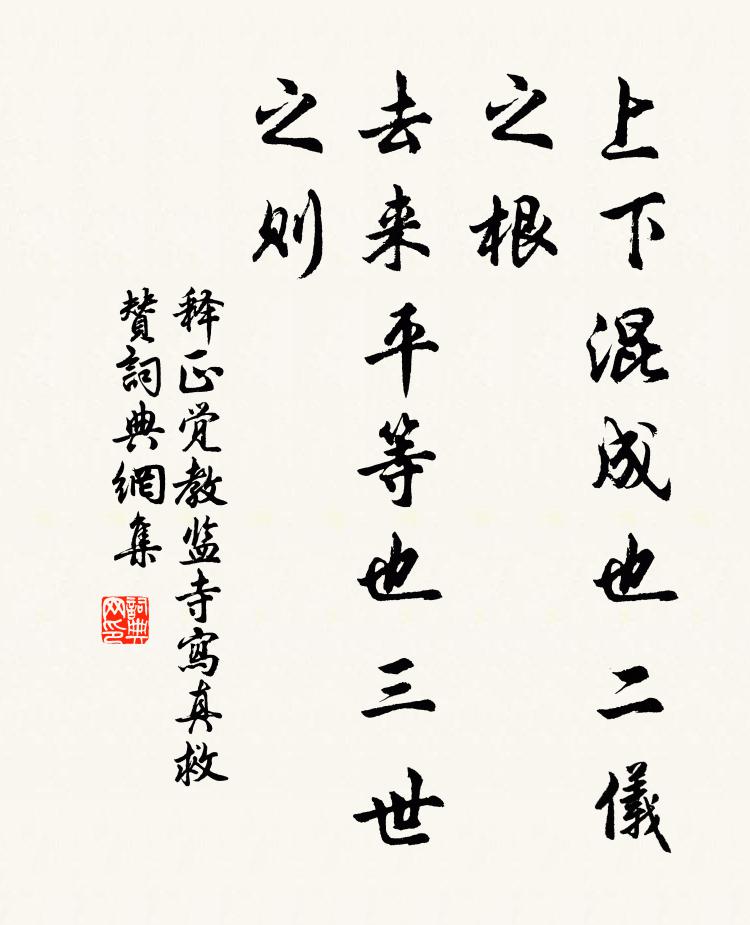 上下混成也二儀
之根
去来平等也三世
之则
释正觉教监寺寫真救
贊詞典網集
詞典
网印